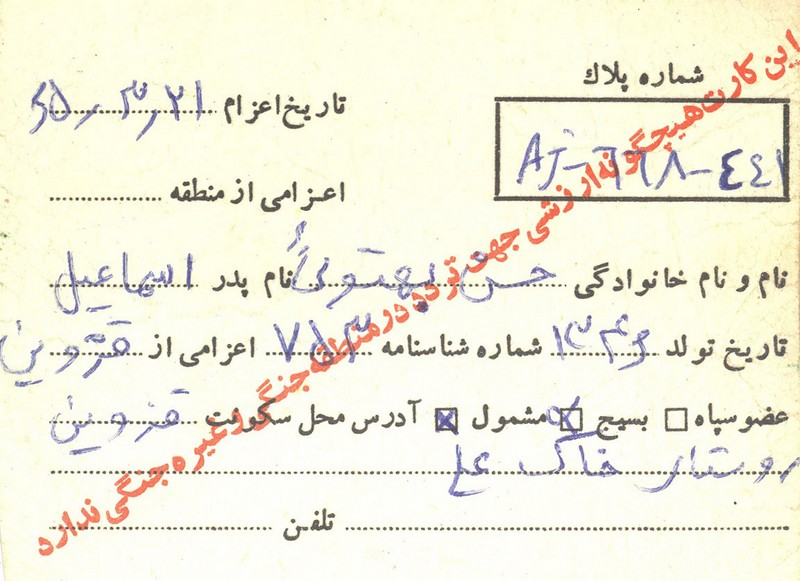 شماره پلاك
AJ-٦٦٨-٤٤١
تاریخ اعزام ۶۵٫۳٫۲۱
اعزامی از منطقه
نام و نام خانوادگی حسن نام پدر اسماعیل
تاریخ تولد ۱۳۴۶ شماره شناسنامه ۷۵۳ اعزامی از قزوین
عضو سپاه بسیج مشمول آدرس محل سکونت قزوین
روستار خاک علی
تلفن
این کارت هیچگونه ارزشی جهت تردد در منطقه جنگی و غیره جنگی ندارد